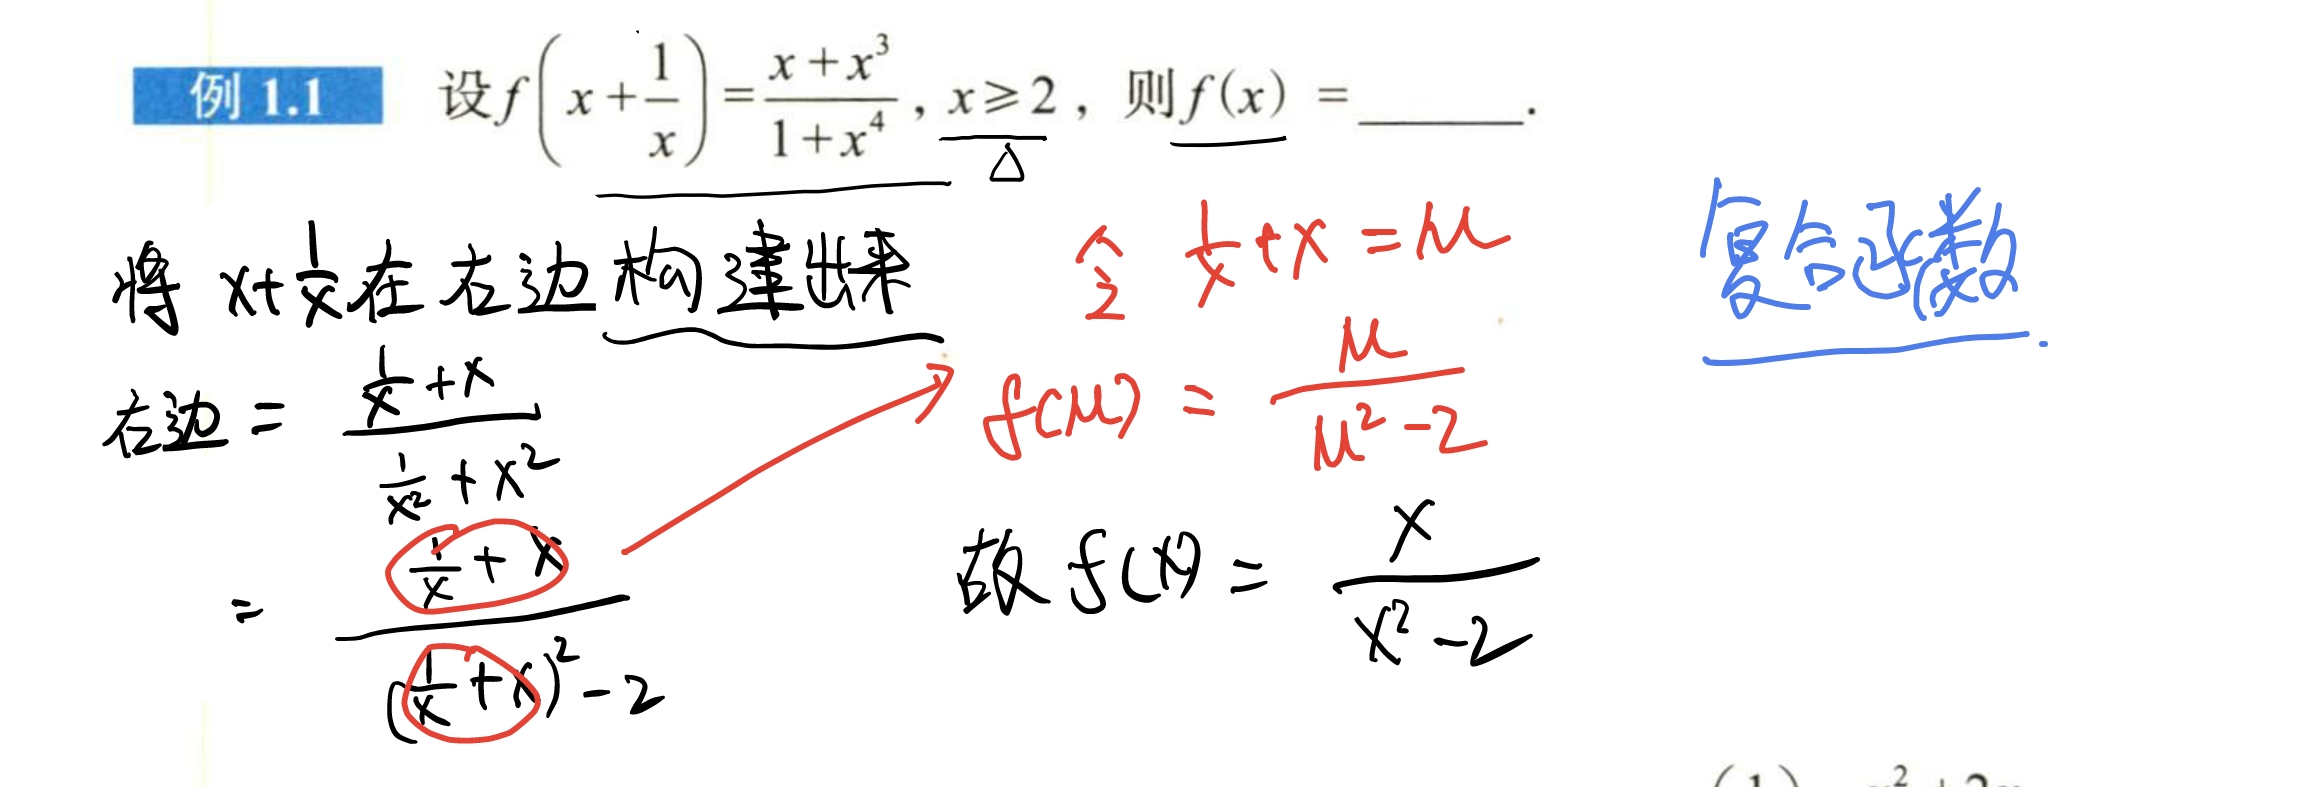 例 1.1 设f(x+1/x)=(x+x³)/(1+x⁴), x≥2, 则f(x) =______.
将 x+1/x 在右边构建出来
右边 = (1/x+x)/(1/x²+x²)
= (1/x+x)/((1/x+x)²-2)
令 1/x+x=μ
f(μ) = μ/(μ²-2)
故 f(x) = x/(x²-2)
复合函数.